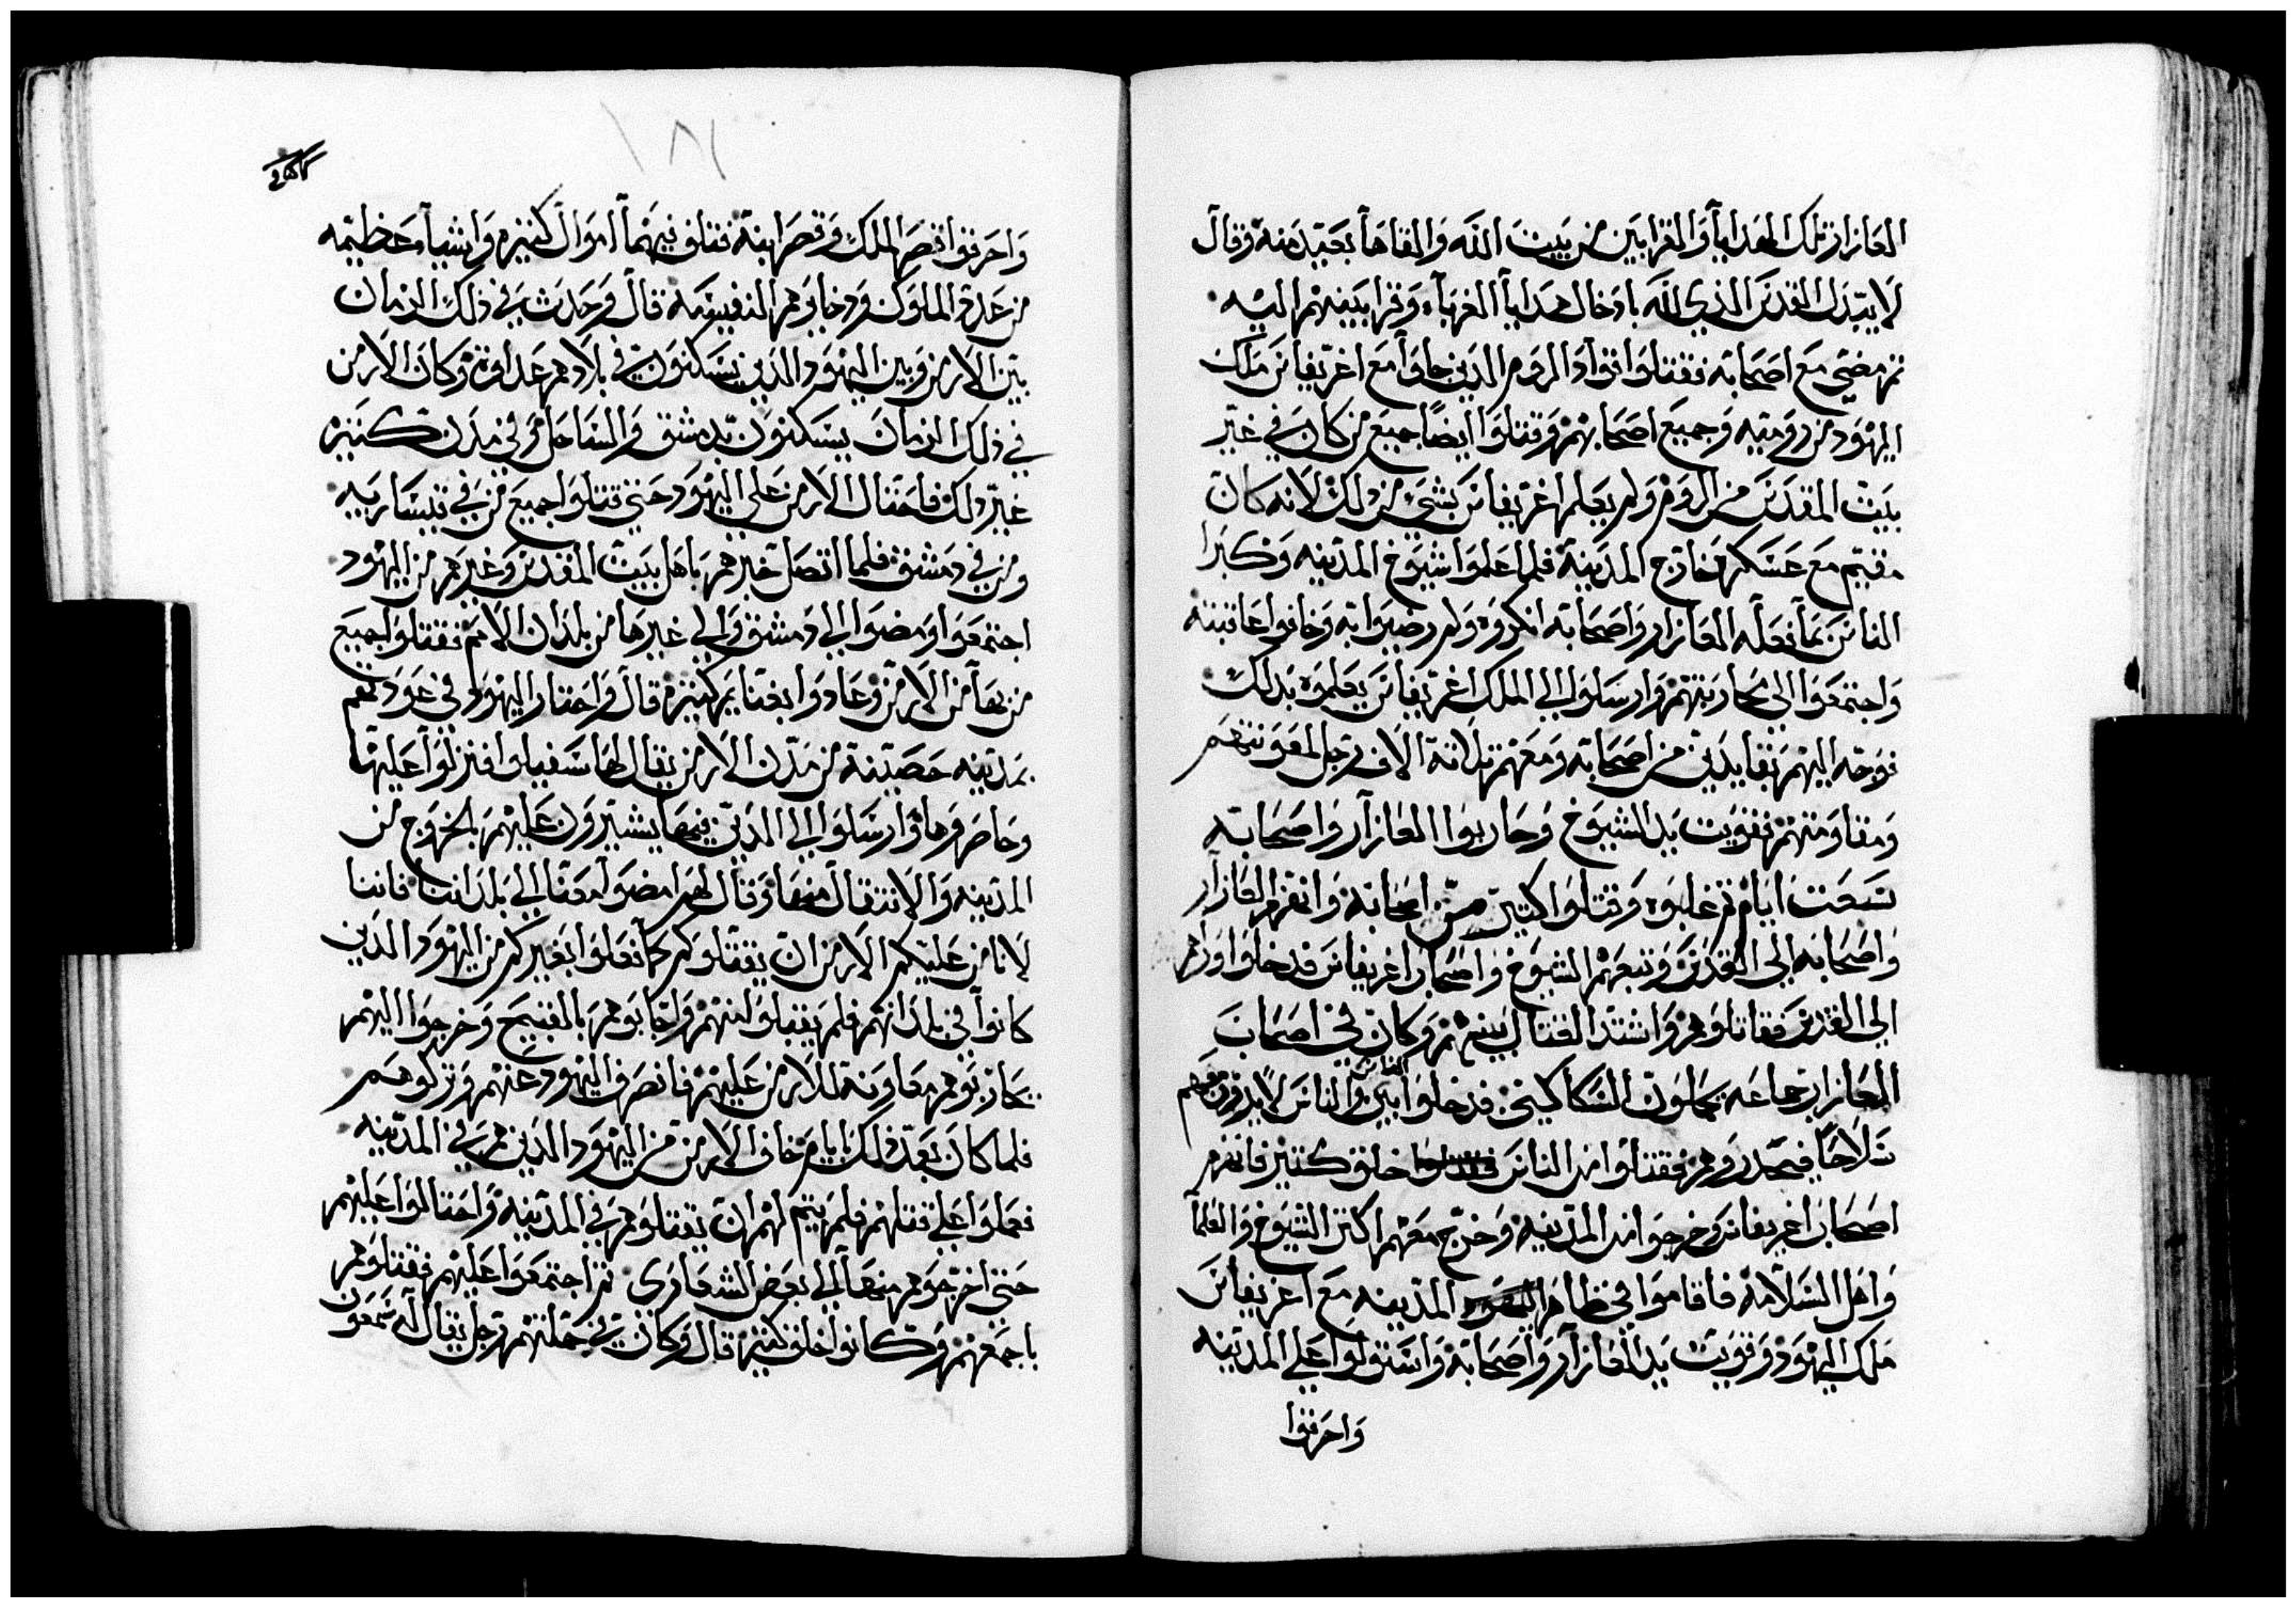 العازار تلك الهدايا والقرابين من بيت الله والقاها بعيد منه وقال
لا يتبدل القدس الذي لله بادخال هدايا الغربآء وقرابينهم اليه
ثم مضي مع اصحابه فقتلوا قواد الروم الدين جاوا مع اغريفاس ملك
اليهود من روميه وجميع اصحابهم وقتلوا ايضا جميع من كان في غير
بيت المقدس من الروم ولم يعلم اغريفاس بشي من دلك لانه كان
مقيم مع عسكره خارج المدينة فلما علموا شيوخ المدينه وكبرا
الناس بما فعله العازار واصحابه انكروه ولم رضيوا به وخافوا عاقبته
واجتمعوا الي محاربتهم وارسلوا الي الملك اغريفاس يعلموه بدلك
فوجه اليهم بقايدين من اصحابه ومعهم تلاتة الاف رجل لمعونتهم
ومقاومتهم فقويت يد الشيوخ وحاربوا العازار واصحابه
تسعت ايام تم غلبوه وقتلوا كتير من اصحابه وانهزم العازار
واصحابه الي القدس وتبعهم الشيوخ واصحاب اغريفاس فدخلوا وراهم
الي القدس فقاتلوهم واشتد القتال بينهم وكان في اصحاب
العازار جماعه يحملون السكاكين فدخلوا بين الناس والناس لا يرون معهم
سلاحا فيحدروهم فقتلوا من الناس خلق كتير فانهزم
اصحاب اغريفاس وخرجوا من المدينه وخرج معهم اكتر الشيوخ والعلما
واهل السلامة فاقاموا في ظاهر المدينه مع اغريفاس
ملك اليهود وقويت يد العازار واصحابه واستولوا علي المدينه
واحرقوا
واحرقوا قصر الملك وقصر ابنة فتلف فيهما اموال كتيره واشيا عظيمه
من عدة الملوك ودخايرهم النفيسه قال وحدث في دلك الزمان
بين الارمن وبين اليهود الدين يسكنون في بلادهم عداوة وكان الارمن
في دلك الزمان يسكنون بدمشق والساحل وفي مدن كتيره
غير دلك فاحتال الارمن علي اليهود حتي قتلوا جميع من في قيساريه
ومن في دمشق فلما اتصل خبرهم باهل بيت المقدس وغيرهم من اليهود
اجتمعوا ومضوا الي دمشق والي غيرها من بلدان الامم فقتلوا جميع
من بها من الارمن وعادوا بغنايم كتيره قال واجتاز اليهود في عودتهم
بمدينه حصينة من مدن الارمن يقال لها سفيلوا فنزلوا عليها
وحاصروها وارسلوا الي الدين فيها يشيرون عليهم بالخروج من
المدينه والانتقال منها وقال لهم امضوا معنا الي بلداننا فاننا
لا نامن عليكم الارمن ان يقتلوكم كما فعلوا بغيركم من اليهود الدين
كانوا في بلدانهم فلم يقبلوا منهم واجابوهم بالقبيح وخرجوا اليهم
يحاربوهم معاونة للارمن عليهم فانصرف اليهود عنهم وتركوهم
فلما كان بعد دلك بايام خاف الارمن من اليهود الدين هم في المدينه
فعملوا علي قتلهم فلم يتم لهم ان يقتلوهم في المدينه واحتالوا عليهم
حتي اخرجوهم منها الي بعض الشعاري تم اجتمعوا عليهم فقتلوهم
باجمعهم وكانوا خلق كتير قال وكان في جملتهم رجل يقال له شمعون